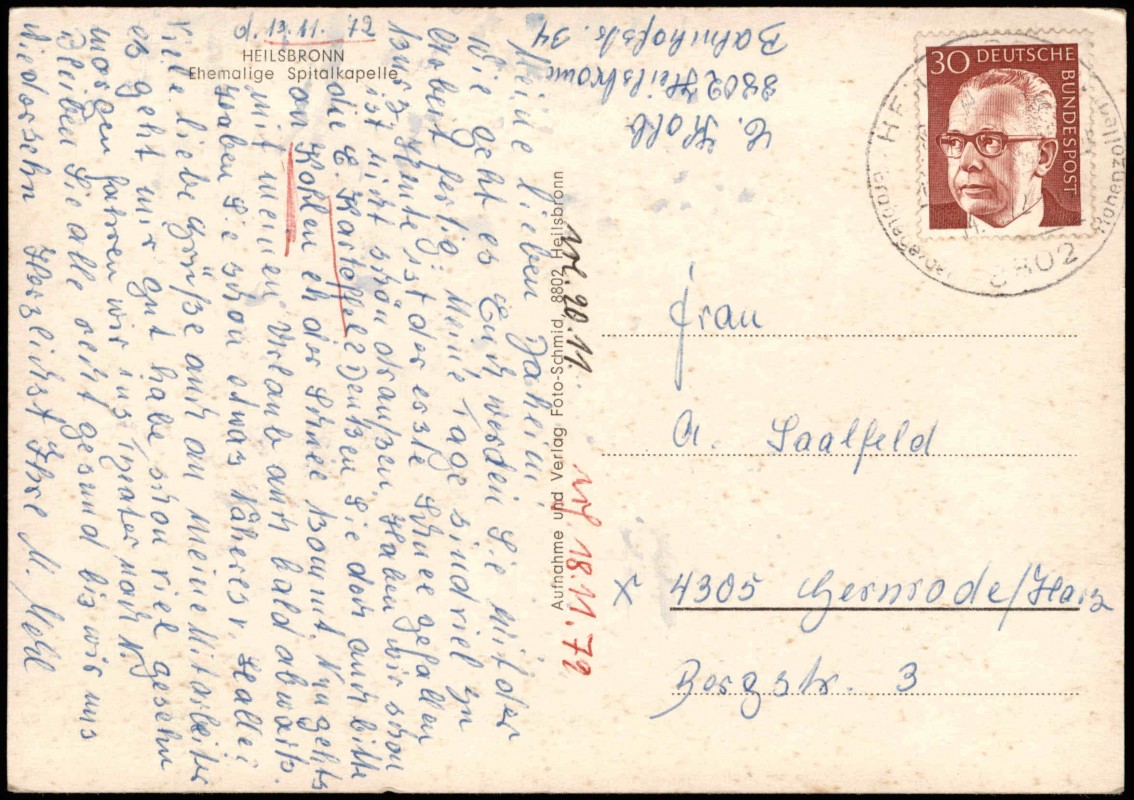 d. 13.11.72
HEILSBRONN
Ehemalige Spitalkapelle
Meine lieben Daheim,
Wie geht es Euch werden Sie mit der
Arbeit fertig. Meine Tage sind viel zu
kurz. Heute ist der erste Schnee gefallen
ist nicht schön draußen. Haben wir schon
die E. Kartoffel? Denken Sie doch auch bitte
an Kohlen eh der Schnee kommt. Nun gehts
mit meinen Urlaub auch bald abwärts.
Haben Sie schon etwas Näheres v. Halle?
Viele liebe Grüße auch an meine Mitarbeiter
es geht mir gut habe schon viel gesehn
morgen fahren wir ins Theater nach N.
Bleiben Sie alle recht gesund bis wir uns
wiedersehn Herzlichst Ihre M.
E. Kolb
8802 Heilsbronn
Bahnhofstr. 34
Aufnahme und Verlag Foto-Schmid, 8802 Heilsbronn
20.11.
18.11.72
30 DEUTSCHE
BUNDESPOST
8802
Hohenzollern
Frau
A. Saalfeld
x 4305 Gernrode/Harz
Bergstr. 3